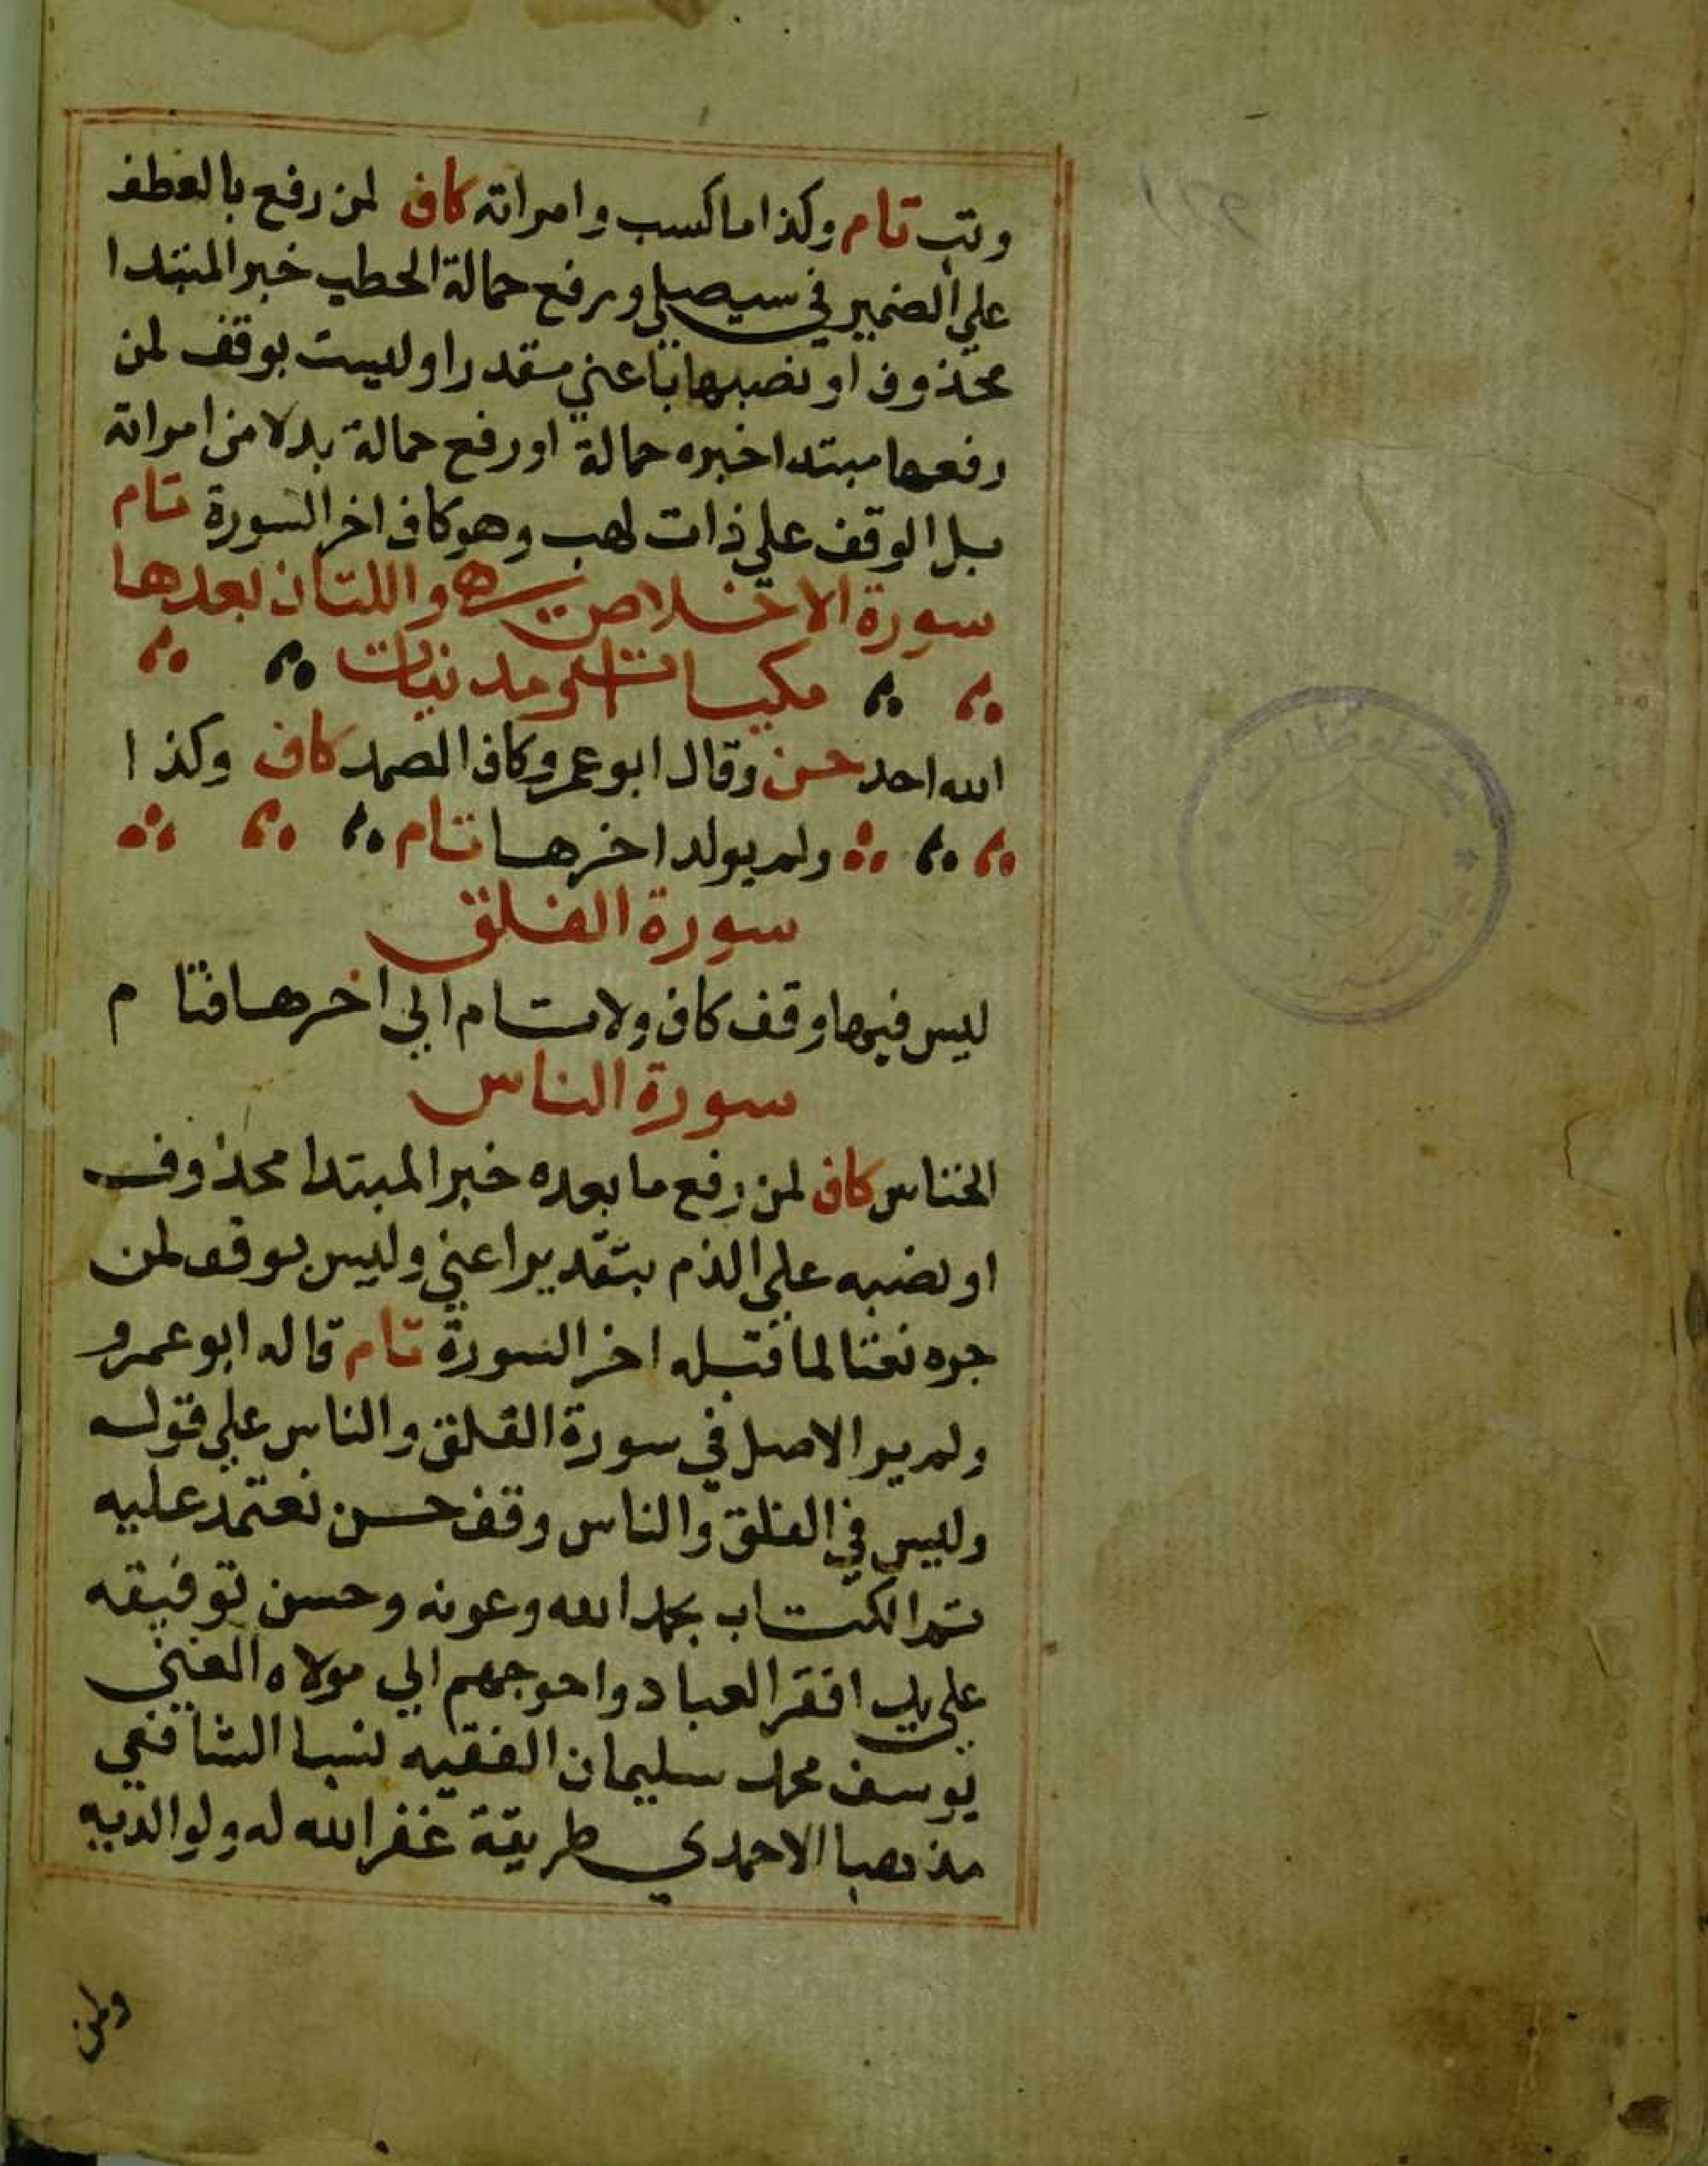 وتب تام وكذا ما كسب وامراته كاف لمن رفع بالعطف
علي الضمير في سيصلي ورفع حمالة الحطب خبر المبتدا
محذوف او نصبها باعني مقدرا وليست بوقف لمن
رفعها مبتدا خبره حمالة او رفع حمالة بدلا من امراته
بل الوقف علي ذات لهب وهو كاف اخر السورة تام
سورة الاخلاص واللتان بعدها
مكيات او مدنيات
الله احد حسن وقال ابو عمرو كاف الصمد كاف وكذا
ولم يولد اخرها تام
سورة الفلق
ليس فيها وقف كاف ولا تام الي اخرها فتام
سورة الناس
الخناس كاف لمن رفع ما بعده خبر المبتدا محذوف
او نصبه علي الذم بتقدير اعني وليس بوقف لمن
جره نعتا لما قبله اخر السورة تام قاله ابو عمرو
ولم ير الاصل في سورة الفلق والناس علي قوله
وليس في الفلق والناس وقف حسن نعتمد عليه
تم الكتاب بحمد الله وعونه وحسن توفيقه
علي يد افقر العباد واحوجهم الي مولاه الغني
يوسف محمد سليمان الفقيه نسبا الشافعي
مذهبا الاحمدي طريقة غفر الله له ولوالديه
ولمن